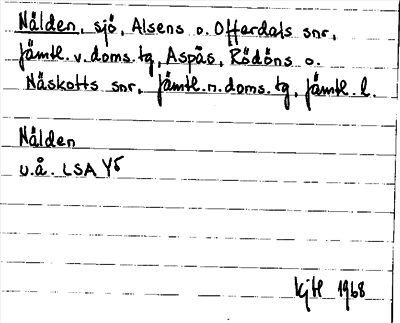 Nälden, sjö, Alsens o. Offerdals snr,
Jämtl. v. doms. tg, Aspås, Rödöns o.
Näskotts snr, Jämtl. n. doms. tg, Jämtl. l.
Nälden
u.å. LSA Y5
kjtl 1968